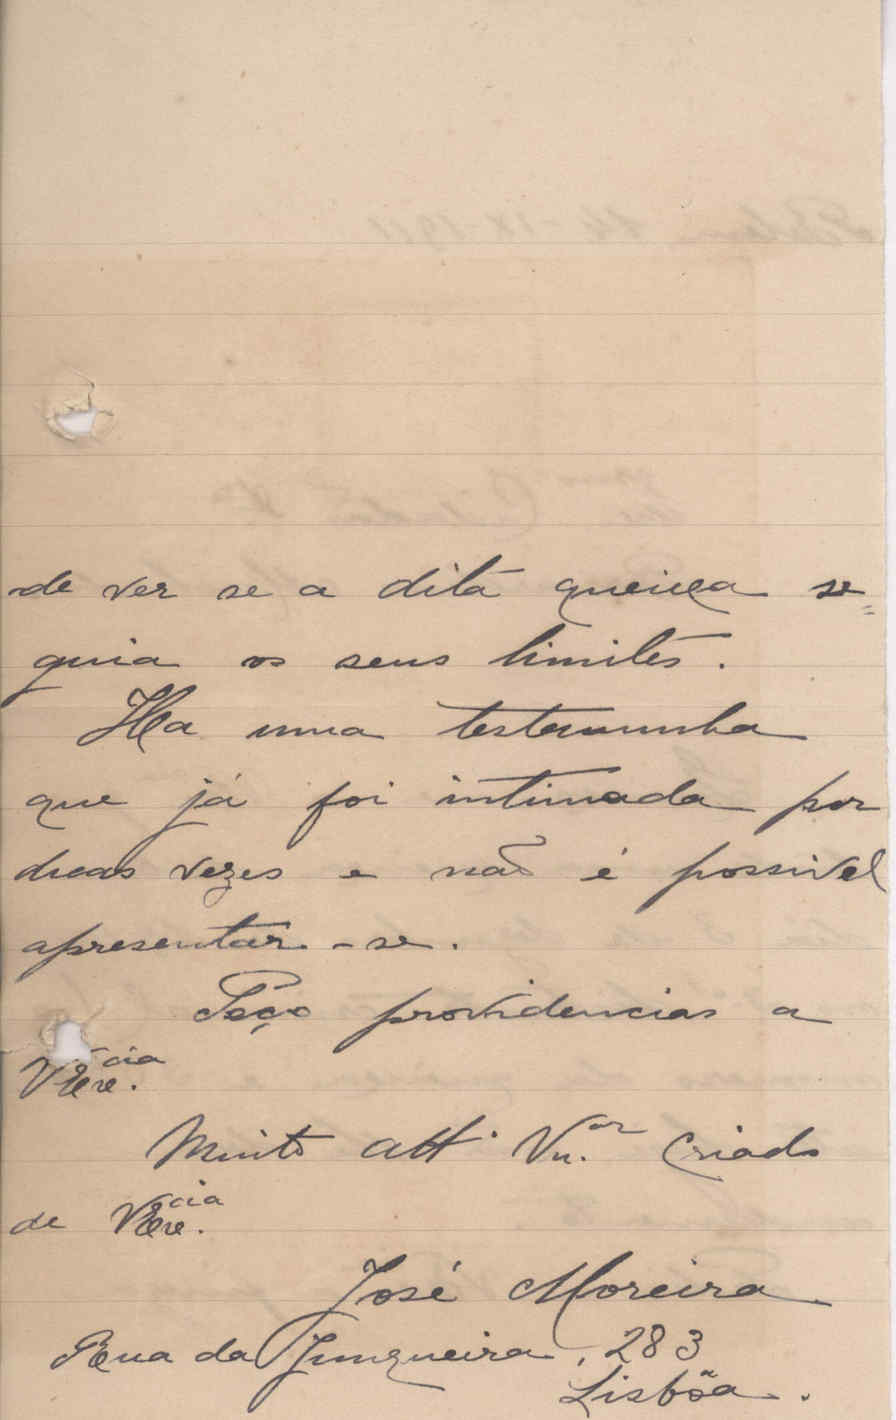 de ver se a dita queixa se=
guia os seus limites.
Ha uma testemunha
que já foi intimada por
duas vezes e não é possivel
apresentar-se.
Peço providencias a
V Exe.cia
Muito att. Vn.or Criado
de V Exe.cia
José Moreira
Rua da Junqueira, 283
Lisbõa.